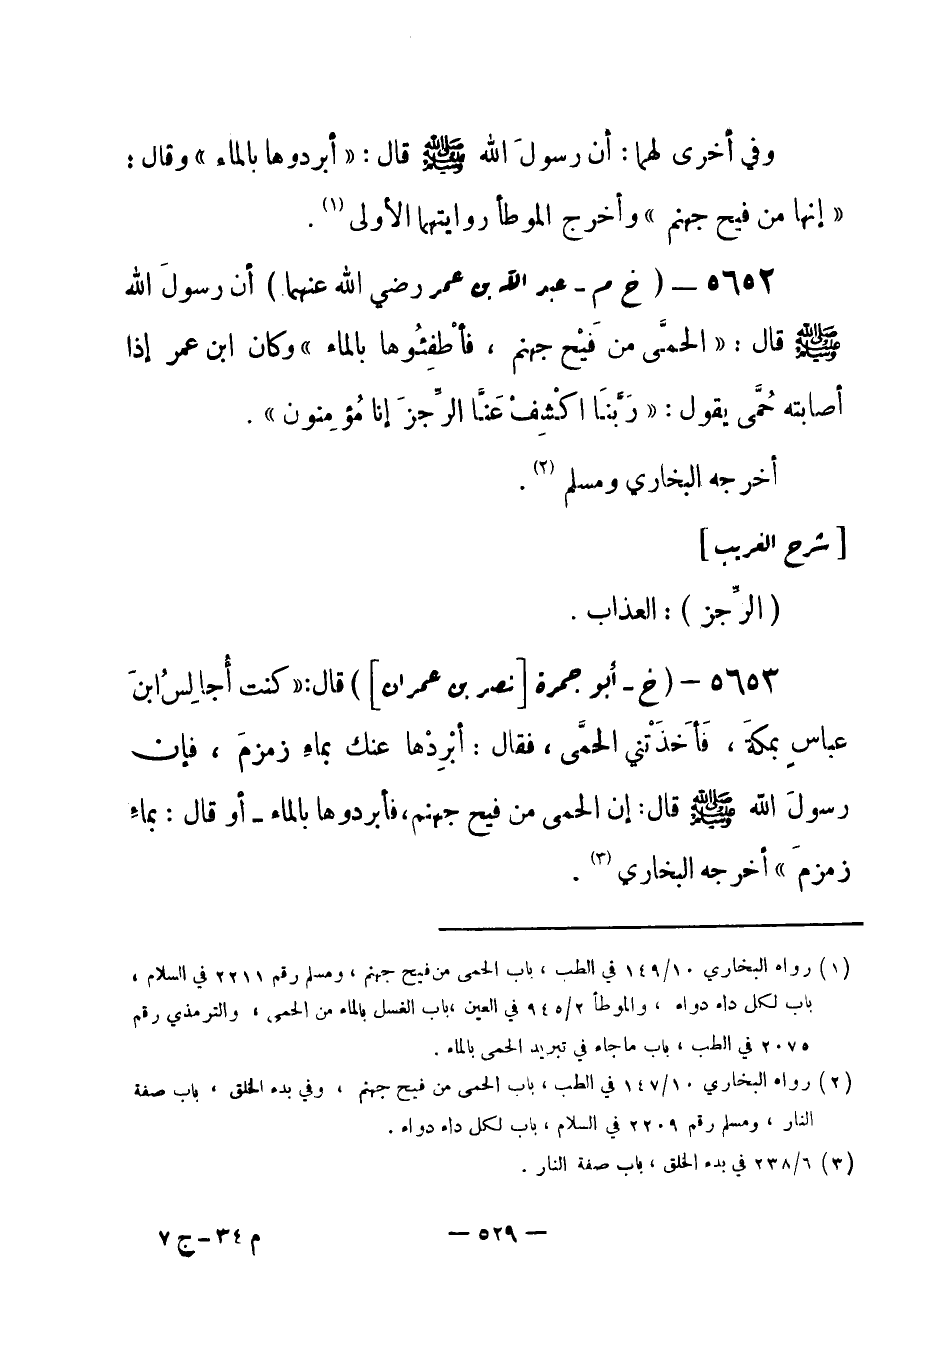 وفي أخرى لهما : أن رسولَ الله ﷺ قال : « أبردوها بالماء » وقال :
« إنها من فيح جهنم » وأخرج الموطأ روايتهما الأولى (١) .
٥٦٥٢ – ( خ م - عبد الله بن عمر رضي الله عنهما ) أن رسولَ الله
ﷺ قال : « الحمَّى من فَيْح جهنم ، فأطْفِئُوها بالماء » وكان ابن عمر إذا
أصابته حُمَّى يقول : « رَبَّنَا اكْشِفْ عَنَّا الرِّجزَ إنا مُؤمِنون » .
أخرجه البخاري ومسلم (٢) .
[ شرح الغريب ]
( الرِّجز ) : العذاب .
٥٦٥٣ – ( خ - أبو جمرة [ نصر بن عمران ] ) قال : « كنت أُجالِسُ ابنَ
عباسٍ بمكةَ ، فَأَخَذَتْني الحمَّى ، فقال : أبْرِدْها عنك بماءِ زمزمَ ، فإن
رسولَ الله ﷺ قال : إن الحمى من فيح جهنم ، فأبردوها بالماء - أو قال : بماءِ
زمزمَ » أخرجه البخاري (٣) .
(١) رواه البخاري ١٤٩/١٠ في الطب ، باب الحمى من فيح جهنم ، ومسلم رقم ٢٢١١ في السلام ،
باب لكل داء دواء ، والموطأ ٩٤٥/٢ في العين ، باب الغسل بالماء من الحمى ، والترمذي رقم
٢٠٧٥ في الطب ، باب ماجاء في تبريد الحمى بالماء .
(٢) رواه البخاري ١٤٧/١٠ في الطب ، باب الحمى من فيح جهنم ، وفي بدء الخلق ، باب صفة
النار ، ومسلم رقم ٢٢٠٩ في السلام ، باب لكل داء دواء .
(٣) ٢٣٨/٦ في بدء الخلق ، باب صفة النار .
– ٥٢٩ –
م ٣٤ - ج ٧